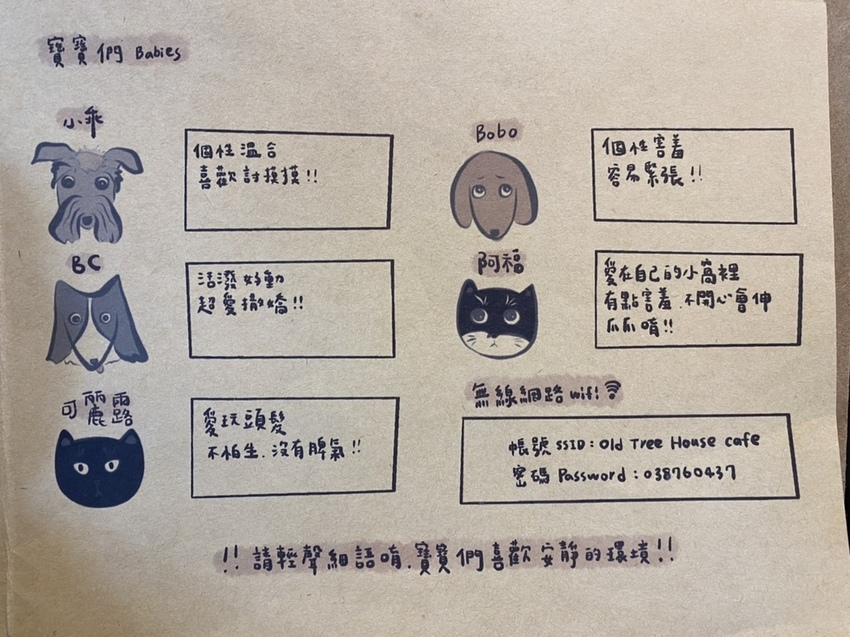 寶寶們 Babies
小乖
個性溫合
喜歡討摸摸!!
Bobo
個性害羞
容易緊張!!
BC
活潑好動
超愛撒嬌!!
阿福
愛在自己的小窩裡
有點害羞.不開心會伸
爪爪唷!!
可麗露
愛玩頭髮
不怕生.沒有脾氣!!
無線網路 wifi
帳號 SSID：Old Tree House cafe
密碼 Password：038760437
!!請輕聲細語唷.寶寶們喜歡安靜的環境!!